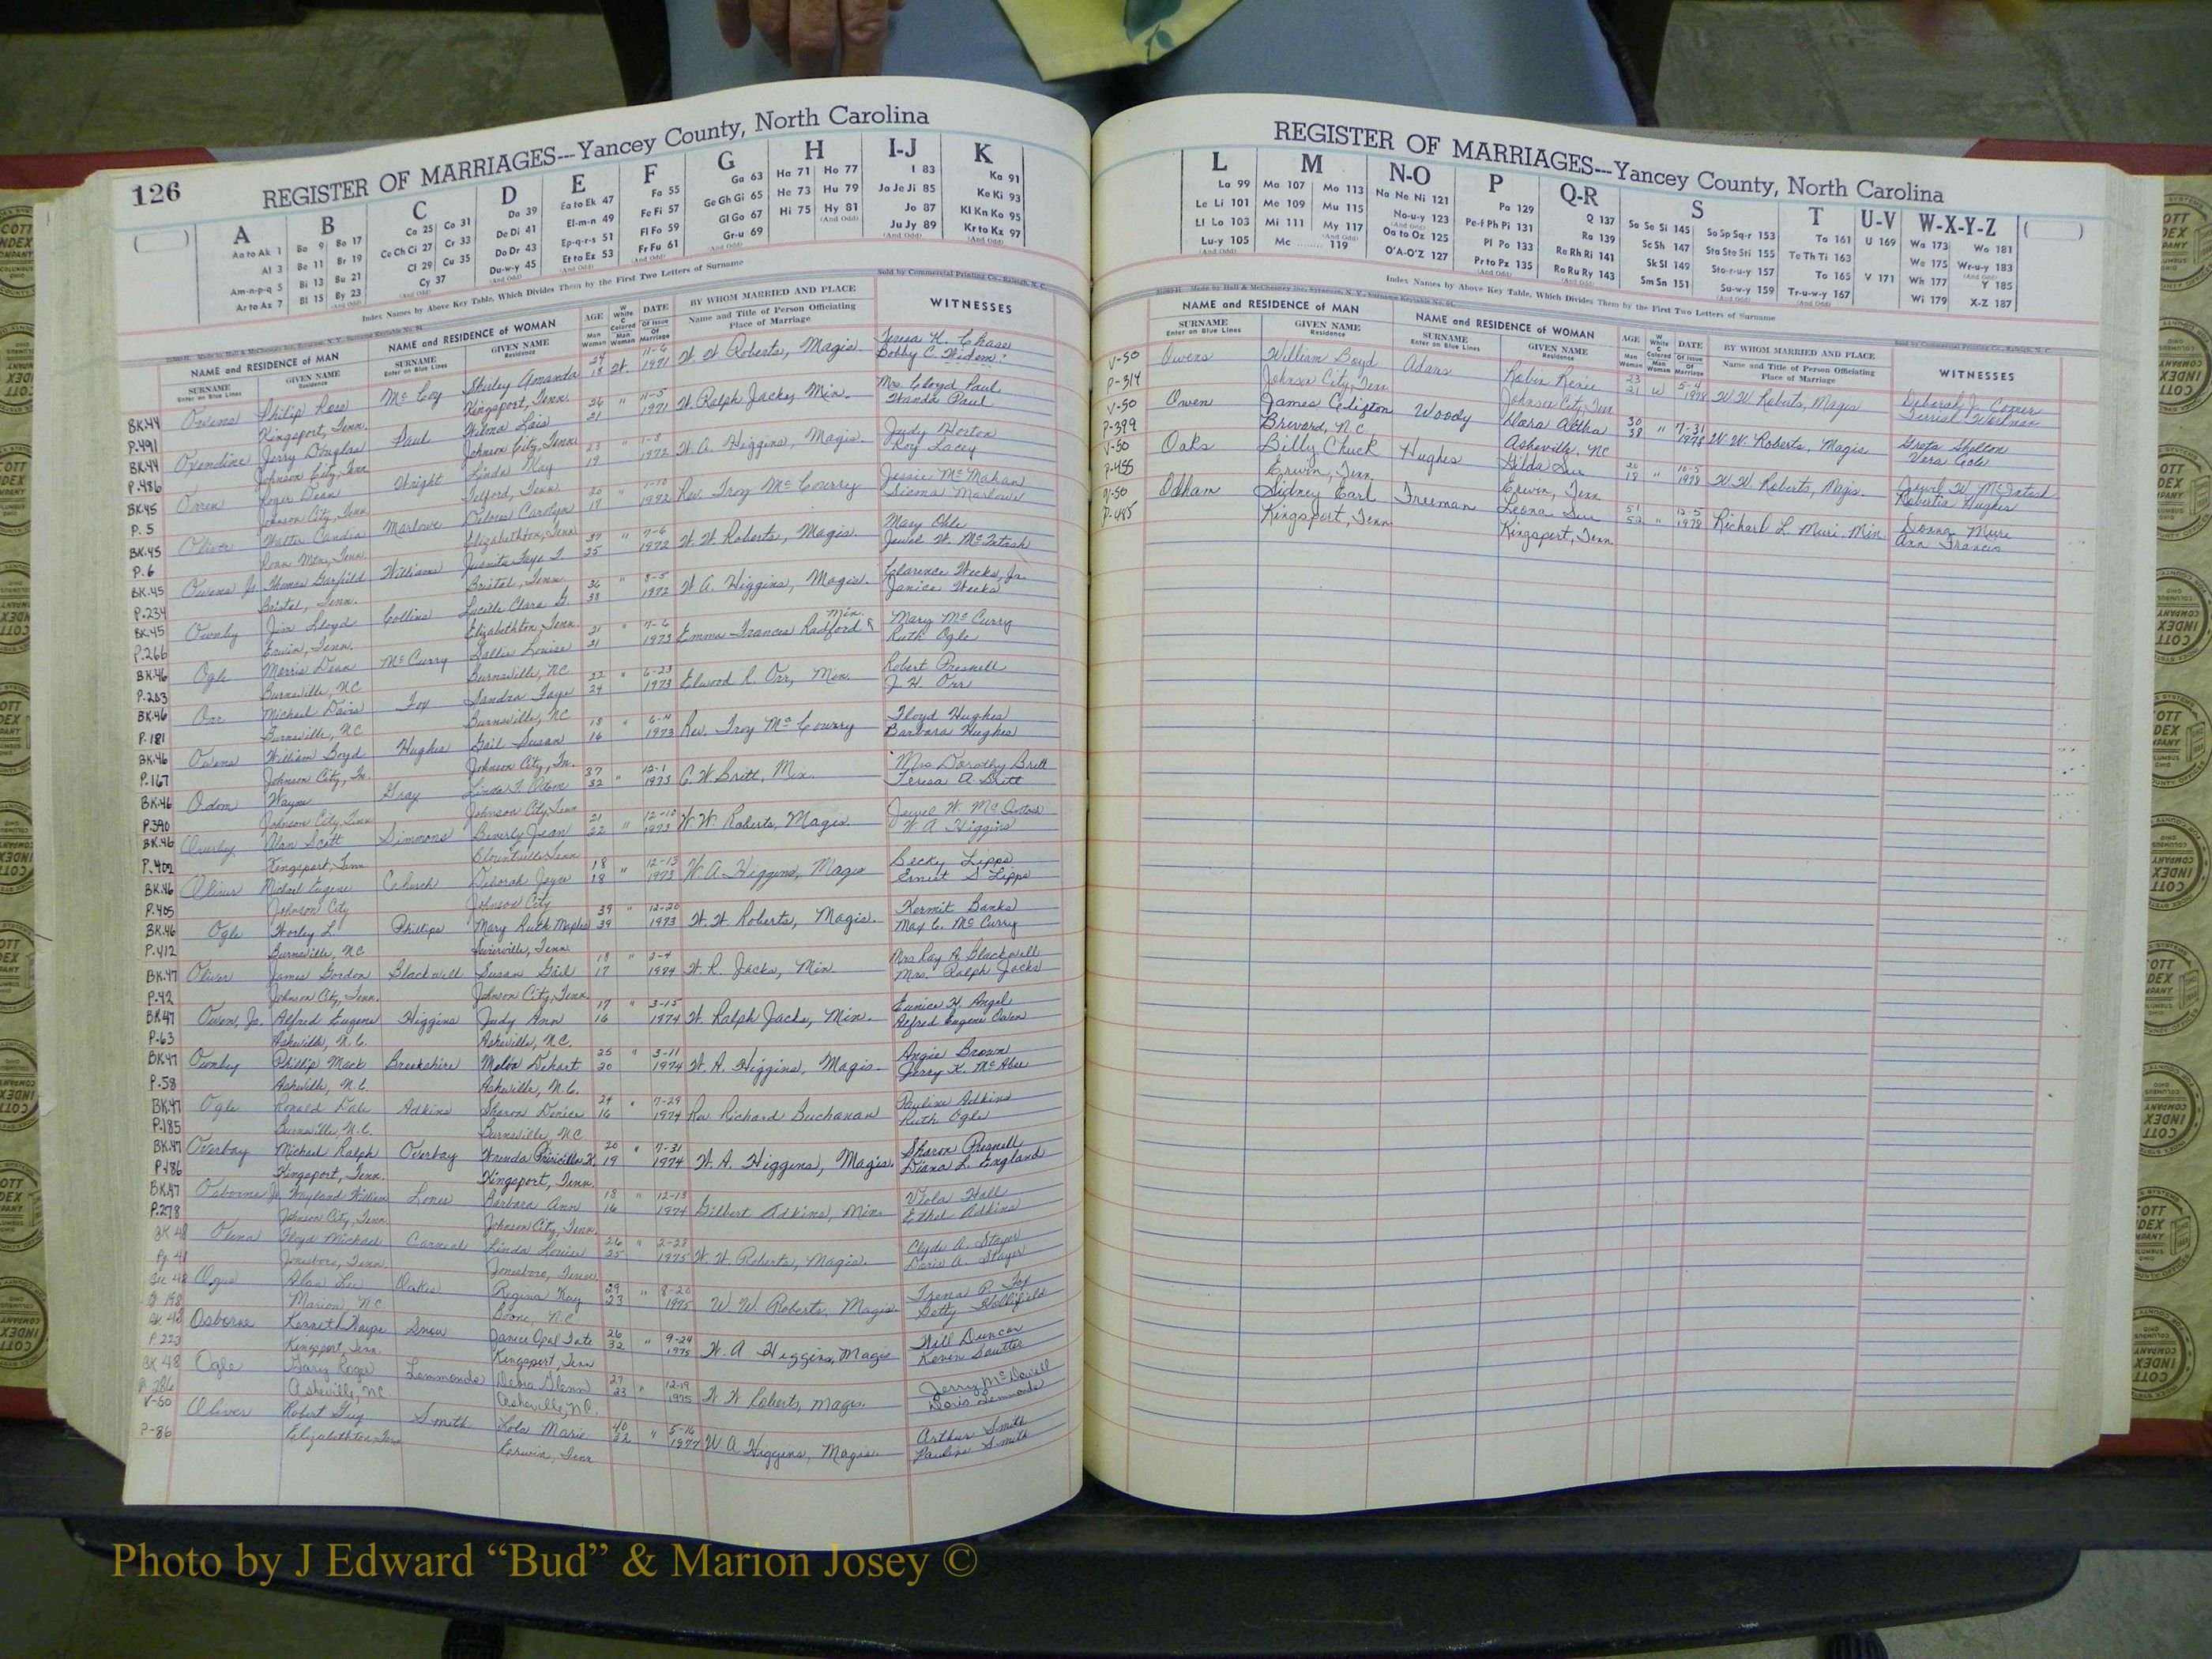 126
REGISTER OF MARRIAGES---Yancey County, North Carolina
A B C D E F G H I-J K
Aa to Ak 1
Al 3
Am-n-p-q 5
Ar to Az 7
Ba 9 Bo 17
Be 11 Br 19
Bi 13 Bu 21
Bl 15 By 23
Ca 25 Co 31
Ce Ch Ci 27 Cr 33
Cl 29 Cu 35
Cy 37
Da 39
De Di 41
Do Dr 43
Du-w-y 45
Ea to Ek 47
El-m-n 49
Ep-q-r-s 51
Et to Ez 53
Fa 55
Fe Fi 57
Fl Fo 59
Fr Fu 61
Ga 63
Ge Gh Gi 65
Gl Go 67
Gr-u 69
Ha 71 Ho 77
He 73 Hu 79
Hi 75 Hy 81
I 83
Ja Je Ji 85
Jo 87
Ju Jy 89
Ka 91
Ke Ki 93
Kl Kn Ko 95
Kr to Kz 97
Index Names by Above Key Table, Which Divides Them by the First Two Letters of Surname
Sold by Commercial Printing Co., Raleigh, N. C.
NAME and RESIDENCE of MAN NAME and RESIDENCE of WOMAN AGE DATE BY WHOM MARRIED AND PLACE WITNESSES
SURNAME GIVEN NAME SURNAME GIVEN NAME Name and Title of Person Officiating
Enter on Blue Lines Residence Enter on Blue Lines Residence Place of Marriage
BK44 Owens Philip Ross McCoy Shirley Amanda 18 W. 11-6 1971 W W Roberts, Magis. Teresa K. Chase
P.491 Kingsport, Tenn. Kingsport, Tenn. Bobby C.
BK44 Oxendine Jerry Douglas Paul Wilma Lois 26 21 " 11-5 1971 W. Ralph Jacks, Min. Mrs. Cloyd Paul
P.486 Johnson City, Tenn Johnson City, Tenn Wanda Paul
BK45 Orren Roger Dean Wright Linda May 23 19 " 1-8 1972 W. A. Higgins, Magis. Judy Horton
P. 5 Johnson City, Tenn Telford, Tenn. Roy Lacey
BK45 Oliver Walter Candia Marlowe Delores Carolyn 20 17 " 1-10 1972 Rev. Troy McCourry Jessie McMahan
P. 6 Roan Mtn., Tenn. Elizabethton, Tenn Marlowe
BK45 Owens Jr. Thomas Garfield Williams Juanita Faye 37 25 " 7-6 1972 W. W. Roberts, Magis. Mary Ogle
P.234 Bristol, Tenn. Bristol, Tenn. Jewel W. McIntosh
BK45 Ownby Jim Lloyd Collins Lucille Clara G. 36 38 " 8-5 1972 W A. Higgins, Magis. Clarence Weeks, Jr.
P.266 Erwin, Tenn. Elizabethton, Tenn. Janice Weeks
BK46 Ogle Morris Dean McCurry Sallie Louise 21 21 " 7-6 1973 Emma Frances Radford Min. Mary McCurry
P.203 Burnsville, NC Burnsville, NC Ruth Ogle
BK46 Orr Michael Davis Fox Sandra Faye 22 24 " 6-23 1973 Elwood R. Orr, Min. Robert Presnell
P.181 Burnsville, NC Burnsville, NC J. H. Orr
BK46 Owens William Boyd Hughes Gail Susan 18 16 " 6-11 1973 Rev. Troy McCourry Floyd Hughes
P.167 Johnson City, Tn. Johnson City, Tn. Barbara Hughes
BK46 Odom Wayne Gray Linda F. Odom 37 32 " 12-1 1973 C. W. Britt, Min. Mrs Dorothy Britt
P.390 Johnson City, Tenn Johnson City, Tenn Teresa A. Britt
BK46 Overby Alan Scott Simmons Beverly Jean 21 22 " 12-10 1973 W. W. Roberts, Magis. Jewel W. McIntosh
P.402 Kingsport, Tenn Blountville, Tenn W. A Higgins
BK46 Oliver Michael Eugene Church Deborah Joyce 18 18 " 12-13 1973 W. A. Higgins, Magis Becky Lipps
P.405 Johnson City Johnson City Ernest S. Lipps
BK46 Ogle Worley L. Phillips Mary Ruth Maples 39 39 " 12-20 1973 W. W. Roberts, Magis. Kermit Banks
P.412 Burnsville, NC Sevierville, Tenn. Max C. McCurry
BK47 Oliver James Gordon Blackwell Susan Gail 18 17 " 2-4 1974 W. R. Jacks, Min Mrs Ray A. Blackwell
P.42 Johnson City, Tenn. Johnson City, Tenn. Mrs. Ralph Jacks
BK47 Owen, Jr. Alfred Eugene Higgins Judy Ann 17 16 " 3-15 1974 W. Ralph Jacks, Min. Eunice H. Angel
P.63 Asheville, N.C. Asheville, N.C. Alfred Eugene Owen
BK47 Ownby Phillip Mack Brookshire Melva Dehart 25 20 " 3-11 1974 W. A. Higgins, Magis. Angie Brown
P.58 Asheville, N.C. Asheville, N.C. Jerry K. McAbee
BK47 Ogle Ronald Dale Adkins Sharon Denice 24 16 " 7-29 1974 Rev Richard Buchanan Pauline Adkins
P.185 Burnsville, N.C. Burnsville, NC Ruth Ogle
BK47 Overbay Michael Ralph Overbay Wrenda Priscilla K. 20 19 " 7-31 1974 W. A. Higgins, Magis. Sharon Presnell
P.186 Kingsport, Tenn. Kingsport, Tenn. Diana L. England
BK47 Osborne Jr Wayland William Lones Barbara Ann 18 16 " 12-13 1974 Gilbert Adkins, Min. Viola Hall
P.278 Johnson City, Tenn Johnson City, Tenn. Ethel Adkins
BK 48 Floyd Michael Carneal Linda Louise 26 25 " 2-23 1975 W. W. Roberts, Magis. Clyde A. Stayer
Pg 41 Jonesboro, Tenn. Jonesboro, Tenn Doris A. Stayer
BK 48 Alan Lee Oakes Regina Kay 29 23 " 8-20 1975 W. W. Roberts, Magis. Trena P. Fox
Marion, NC Boone, N.C Betty Hollifield
BK 48 Osborne Kenneth Wayne Snow Janice Opal Tate 26 32 " 9-24 1975 W. A Higgins, Magis Will Duncan
P. 223 Kingsport, Tenn Kingsport, Tenn Kevin Sautter
BK 48 Ogle Gary Roger Lemmonds Debra Glenn 27 23 " 12-19 1975 W W Roberts, Magis. Jerry McDowell
P. 286 Asheville, NC. Asheville, NC. Doris Lemmonds
V-50 Oliver Robert Guy Smith Lola Marie 40 22 " 5-16 1977 W A Higgins, Magis. Arthur Smith
P-86 Elizabethton, Tenn Erwin, Tenn Pauline Smith
REGISTER OF MARRIAGES---Yancey County, North Carolina
L M N-O P Q-R S T U-V W-X-Y-Z
La 99
Le Li 101
Ll Lo 103
Lu-y 105
Ma 107 Mo 113
Me 109 Mu 115
Mi 111 My 117
Mc ........ 119
Na Ne Ni 121
No-u-y 123
Oa to Oz 125
O'A-O'Z 127
Pa 129
Pe-f Ph Pi 131
Pl Po 133
Pr to Pz 135
Q 137
Ra 139
Re Rh Ri 141
Ro Ru Ry 143
Sa Se Si 145 So Sp Sq-r 153
Sc Sh 147 Sta Ste Sti 155
Sk Sl 149 Sto-r-u-y 157
Sm Sn 151 Su-w-y 159
Ta 161
Te Th Ti 163
To 165
Tr-u-w-y 167
U 169
V 171
Wa 173 Wo 181
We 175 Wr-u-y 183
Wh 177 Y 185
Wi 179 X-Z 187
Index Names by Above Key Table, Which Divides Them by the First Two Letters of Surname
NAME and RESIDENCE of MAN NAME and RESIDENCE of WOMAN AGE DATE BY WHOM MARRIED AND PLACE WITNESSES
SURNAME GIVEN NAME SURNAME GIVEN NAME Name and Title of Person Officiating
Enter on Blue Lines Residence Enter on Blue Lines Residence Place of Marriage
V-50 Owens William Boyd Adams Robin Renie 23 21 W 5-4 1978 W W Roberts, Magis Deborah J. Comer
P-314 Johnson City, Tenn Johnson City, Tenn Workman
V-50 Owen James Clifton Woody Dora Altha 30 38 " 7-31 1978 W. W. Roberts, Magis Greta Shelton
P-399 Brevard, N.C. Asheville, NC Vera Cole
V-50 Oaks Billy Chuck Hughes Gilda Sue 20 18 " 10-5 1978 W W Roberts, Mgis. Jewel W McIntosh
P-455 Erwin, Tenn Erwin, Tenn Robertia Hughes
V-50 Odham Sidney Earl Freeman Leona Sue 51 52 " 12-5 1978 Richard L. Muri, Min Donna Muri
P-485 Kingsport, Tenn Kingsport, Tenn Ann Francis
Photo by J Edward “Bud” & Marion Josey ©